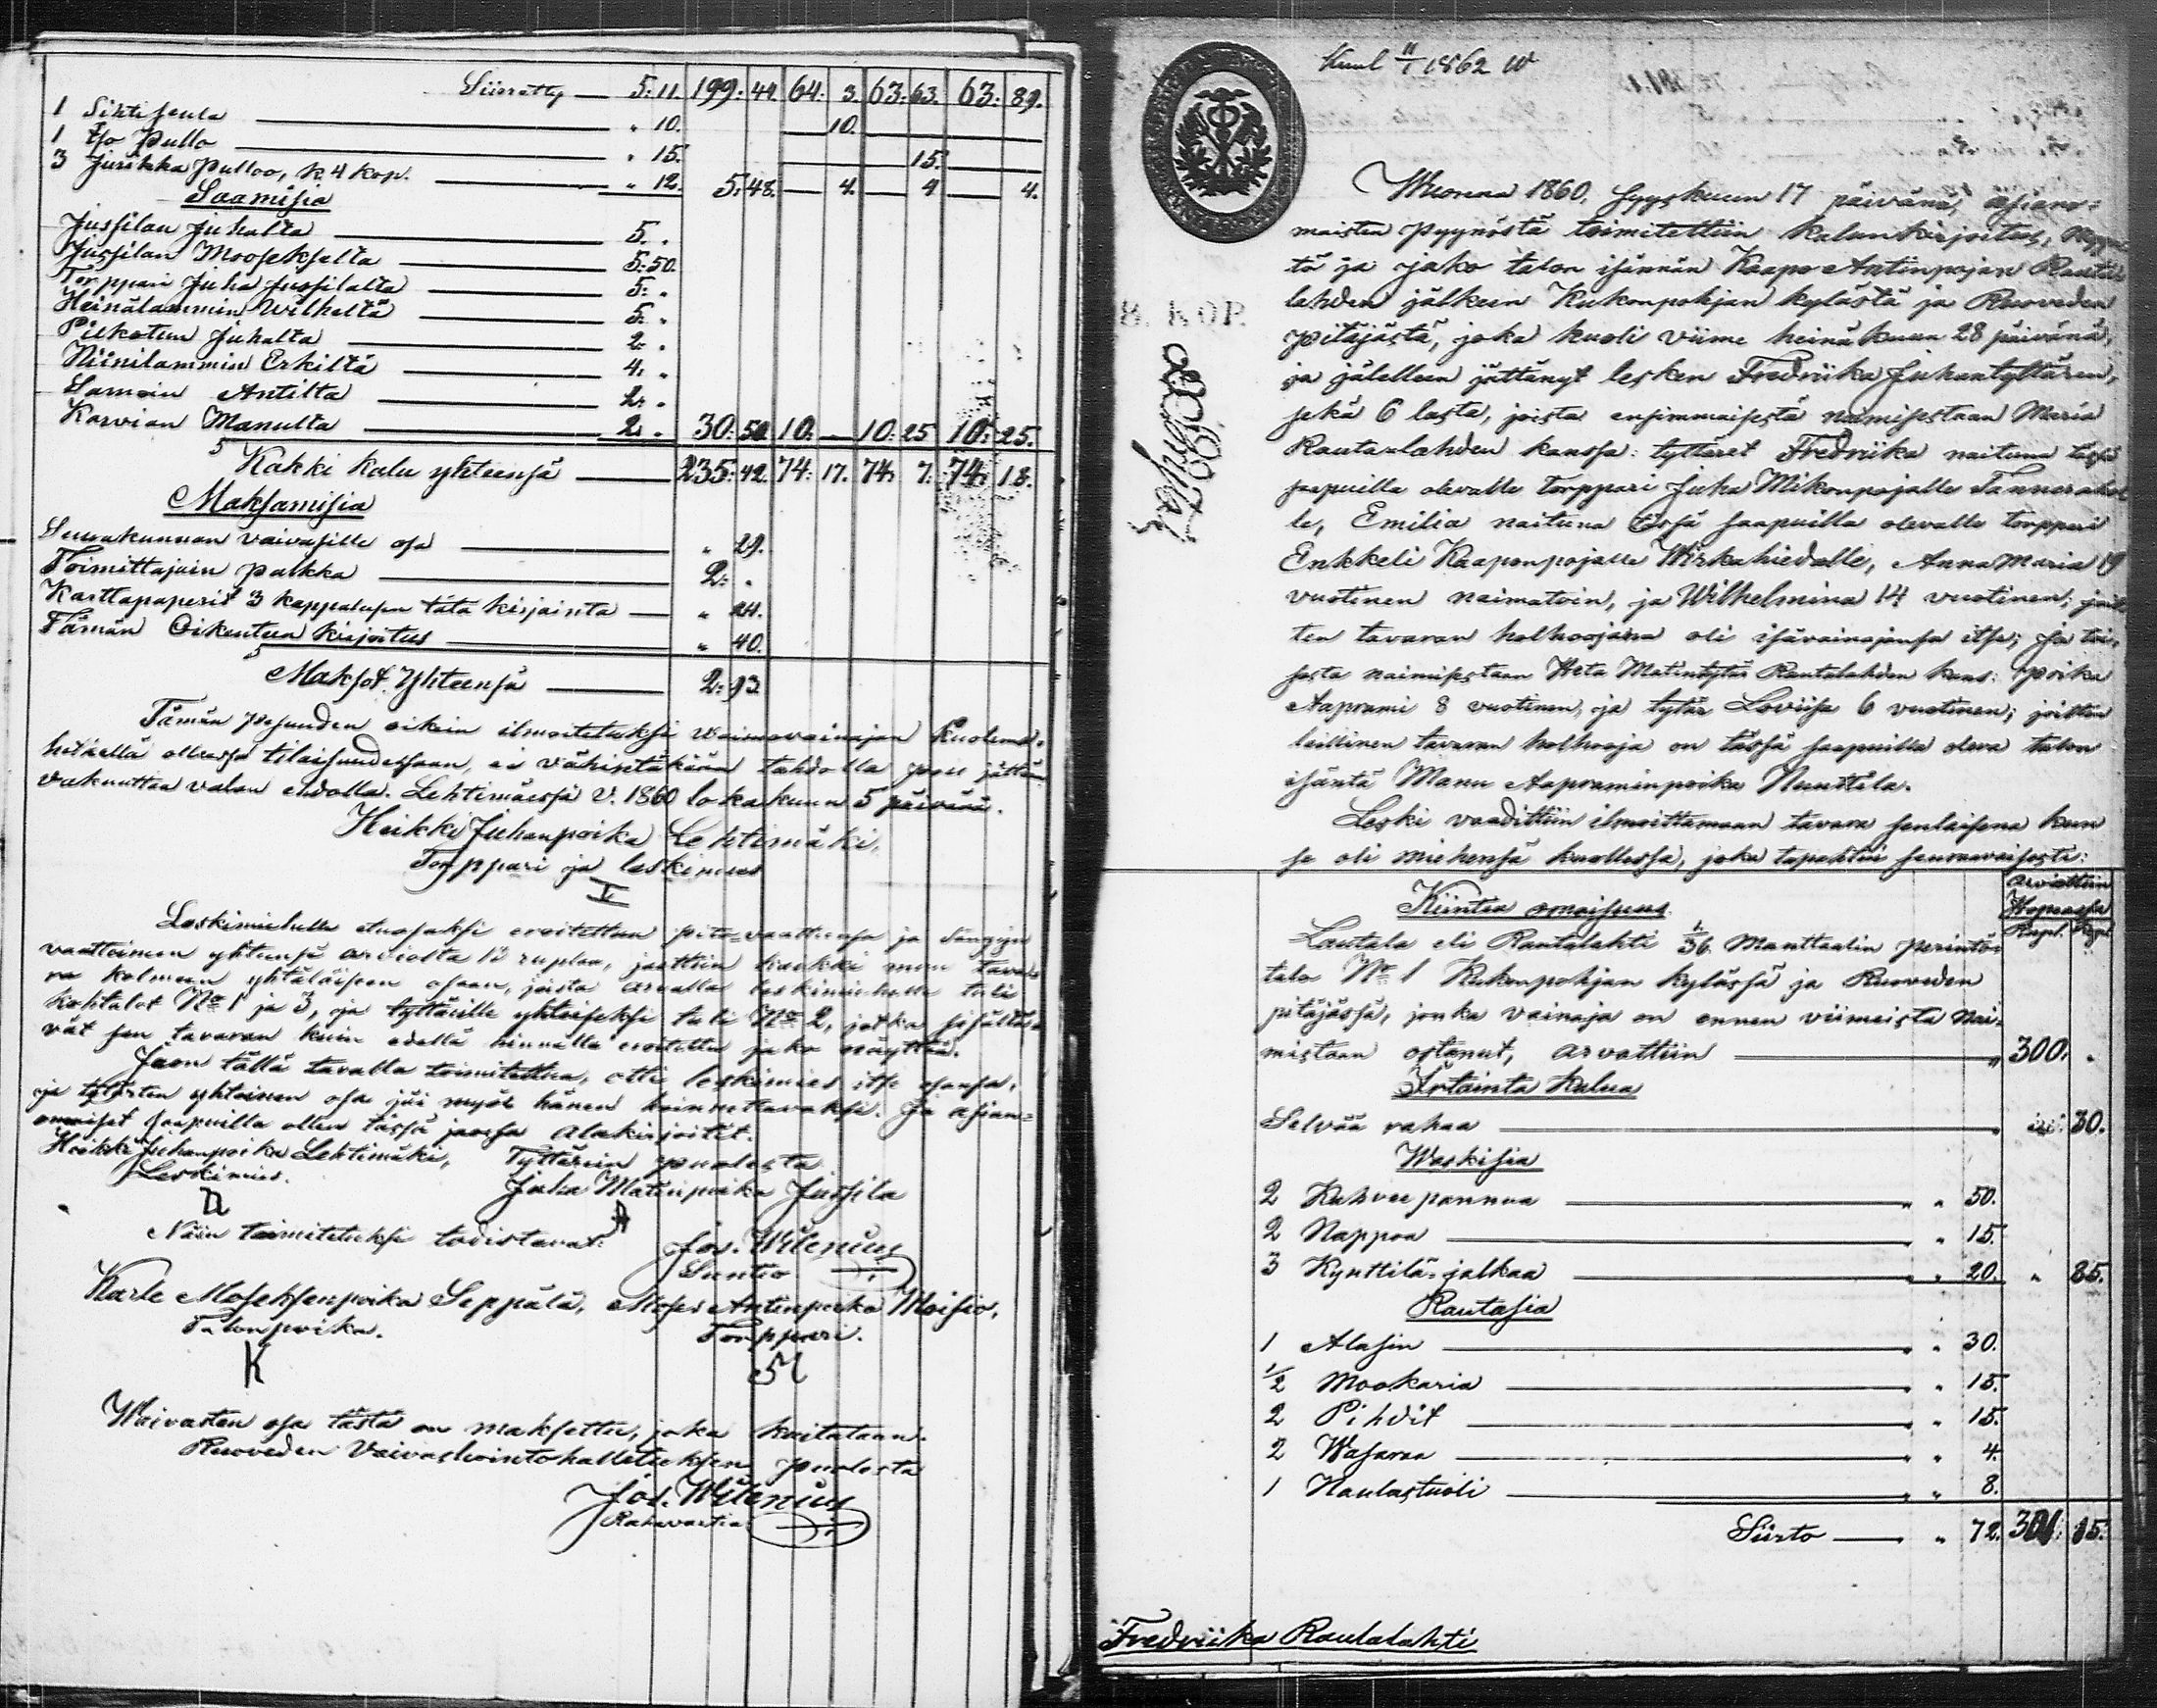 Siirretty — 5: 11. 199: 44. 64: 3. 63: 63. 63: 89.
1 Sihti seula — " 10. — 10. —
1 t:o Pullo — " 15. — 15. —
3 Jurikka Pulloo, K 4 kop. — " 12. 5: 48. — 4. — 4 — 4.
Saamisia
Jussilan Juhalta — 5: "
Jussilan Moosekselta — 5: 50.
Torppari Juha Jussilalta — 5: "
Heinälammin Wilheltä — 5: "
Pilkotun Juhalta — 2: "
Niinilammin Erkiltä — 4: "
Samoin Antilta — 2: "
Karvian Manulta — 2: " 30: 50. 10: — 10: 25 10: 25.
Kakki kalu yhteensä — 235: 42. 74: 17. 74: 7. 74: 18.
Maksamisia
Seurakunnan vaivasille osa — " 29.
Toimittajain palkka — 2: "
Karttapaperit 3 kappalesen tätä kirjainta — " 24.
Tämän Oikeutun kirjoitus — " 40.
Maksot Yhteensä — 2: 93
Tämän pesuuden oikein ilmoitetuksi vaimovainajan kuoleman
hetkellä ollessa tilaisuudessaan, ei vähintäkään tahdolla pois jättäin
vakuuttaa valan ehdolla. Lehtimäessä v. 1860 lokakuun 5 päivänä.
Heikki Juhanpoika Lehtimäki,
Torppari ja leskimies
Leskimiehelle etuosaksi eroitettua pito-vaatteensa ja sängyn
vaatteineen yhteensä arviolta 12 ruplaa, jaettiin kaikki muu tava-
ra kolmeen yhtäläiseen osaan, joista arvalla leskimiehelle tuli
kohtalot No 1 ja 3, ja tyttärille yhteiseksi tuli No 2, jotka sisältä-
vät sen tavaran kuin edellä hinnalla eroitettu jako näyttää.
Jaon tällä tavalla toimitettua, otti leskimies itse osansa,
ja tytärten yhteinen osa jäi myös hänen hoinnettavaksi. Ja asian-
omaiset saapuilla ollen tässä jaossa alakirjoitit.
Heikki Juhanpoika Lehtimäki, Tyttärein puolesta
Leskimies. Juha Matinpoika Jussila
Näin toimitetuksi todistavat: Jos. Wilenius
Suntio
Karle Moseksenpoika Seppälä, Moses Antinpoika Moisio,
Talonpoika. Torppari.
K M
Waivasten osa tästä on maksettu, joka kuitataan.
Ruoveden Vaivashointohallituksen puolesta
Jos. Wilenius
Rahavartia
Kuul 11/1 1862 W
8. KOP.
Wuonna 1860, Syyskuun 17 päivänä, asiano-
maisten pyynöstä toimitettiin kalunkirjoitus,
tö ja jako talon isännän Kaapo Antinpojan Rauta-
lahden jälkeen Kukonpohjan kylästä ja Ruoveden
pitäjästä, joka kuoli viime heinäkuun 28 päivänä,
ja jälelleen jättänyt lesken Fredriika Juhantyttären,
sekä 6 lasta, joista ensimmaisestä naimisestaan Maria
Rautalahden kanssa: tyttäret Fredriika naituna tässä
saapuilla olevalle torppari Juha Mikonpojalle
le, Emilia naituna tässä saapuilla olevalle torppari
Enkkeli Kaaponpojalle Wirkahiedalle, Anna Maria 19
vuotinen naimatoin, ja Wilhelmina 14 vuotinen; joit-
ten tavaran holhoojana oli isävainajansa itse; ja toi-
sesta naimisestaan Heta Matintytär Rautalahden kans: poika
Aaprami 8 vuotinen, ja tytär Loviisa 6 vuotinen; joitten
laillinen tavaran holhooja on tässä saapuilla oleva talon
isäntä Manu Aapraminpoika Nuuttila.
Leski vaadittiin ilmoittamaan tavara senlaisena kun
se oli miehensä kuollessa, joka tapahtui seuraavaisesti:
Kiintea omaisuus. Arvattiin
Hopeassa
Lautala eli Rautalahti 1/36 Manttaalin perintö- Rupl. Kop.
talo No 1 Kukonpohjan kylässä ja Ruoveden
pitäjässä, jonka vainaja on ennen viimeista nai-
mistaan ostanut, arvattiin — " 300: "
Irtainta kalua
Selvää rahaa — " 30.
Waskisia
2 Kahvee pannua — " " 50.
2 Nappoa — " " 15.
3 Kynttilä-jalkaa — " " 20. " 85.
Rautasia
1 Alasin — " " 30.
1/2 Mookaria — " " 15.
2 Pihdit — " " 15.
2 Wasaraa — " " 4.
1 Naulastuoli — " " 8.
Siirto — " 72. 301: 15.
Fredriika Rautalahti